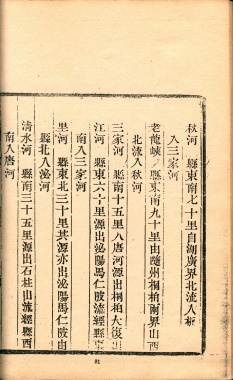 秋河　縣東南七十里自湖廣界北流入
入三家河
老龍峽　縣東南九十里由隨州桐柏兩界山西
北流入秋河
三家河　縣南十五里入唐河源出桐柏大復山
南入三家河
江河　縣東六十里源出泌陽馬仁陂流經縣東
里河　縣東北三十里其源亦出泌陽馬仁陂由
縣北入泌河
清水河　縣南三十五里源出石柱山流經縣西
南入唐河